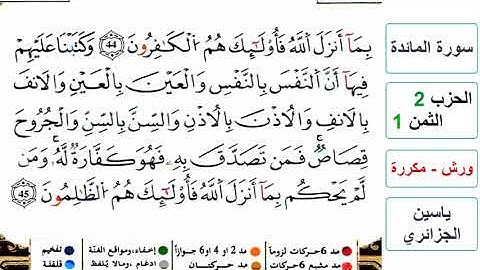 بِمَآ أَنزَلَ اَللَّهُ فَأُوْلَٰٓئِكَ هُمُ اُلْكَٰفِرُونَ 44 وَكَتَبْنَا عَلَيْهِمْ
فِيهَآ أَنَّ اَلنَّفْسَ بِالنَّفْسِ وَالْعَيْنَ بِالْعَيْنِ وَالَانفَ
بِالَانفِ وَالُاذْنَ بِالُاذْنِ وَالسِّنَّ بِالسِّنِّ وَالْجُرُوحَ
قِصَاصٌۖ فَمَن تَصَدَّقَ بِهِۦ فَهُوَ كَفَّارَةٌ لَّهُۥۖ وَمَن
لَّمْ يَحْكُم بِمَآ أَنزَلَ اَللَّهُ فَأُوْلَٰٓئِكَ هُمُ اُلظَّٰلِمُونَ 45
سورة المائدة
الحزب 2
الثمن 1
ورش - مكررة
ياسين
الجزائري
مد 6 حركات لزوماً
مد 2 او 4 او 6 جوازاً
إخفاء، ومواقع الغنّة
تفخيم
مد مشبع 6 حركات
مد حركتـان
ادغام ، ومالا يُلفظ
قلقلة